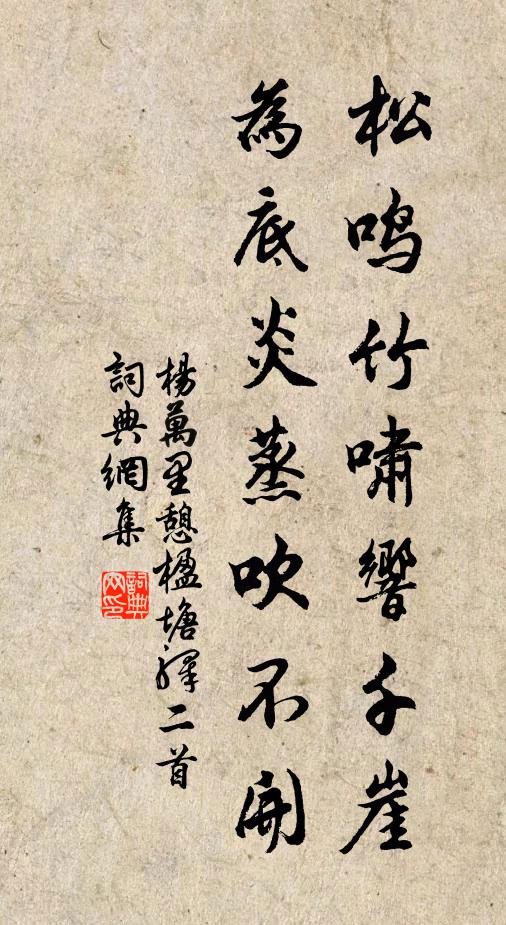 松鸣竹嘯響千崖
為底炎蒸吹不開
楊萬里憩楹塘驛二首
詞典網集
詞典
网印